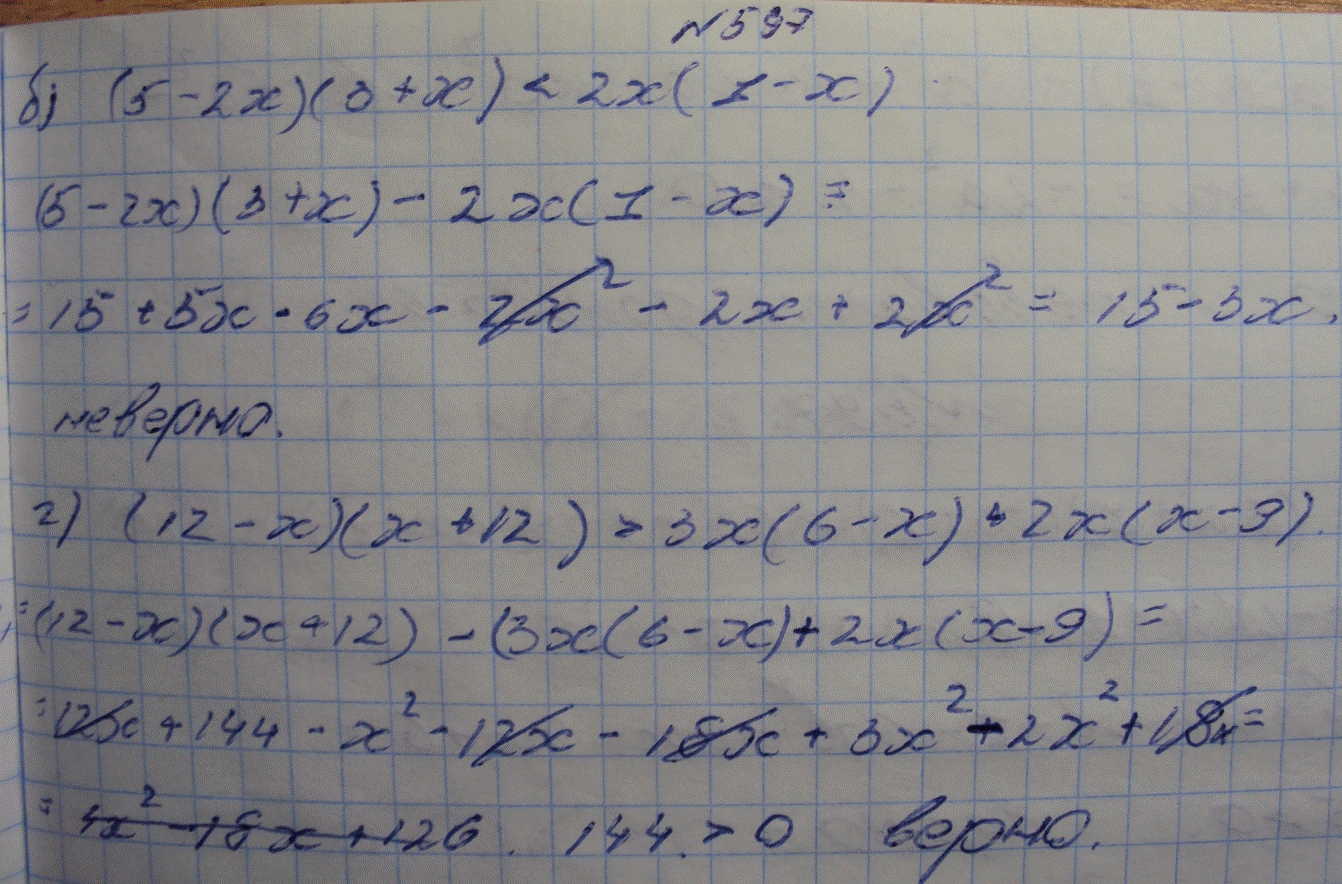 №597
б) (5-2x)(3+x) < 2x(1-x)
(5-2x)(3+x) - 2x(1-x) =
= 15 + 5x - 6x - 2x² - 2x + 2x² = 15 - 3x,
неверно.
г) (12-x)(x+12) > 3x(6-x) + 2x(x-9).
= (12-x)(x+12) - (3x(6-x) + 2x(x-9) =
= 12x + 144 - x² - 12x - 18x + 3x² - 2x² + 18x =
= 4x² - 18x + 126. 144 > 0 верно.